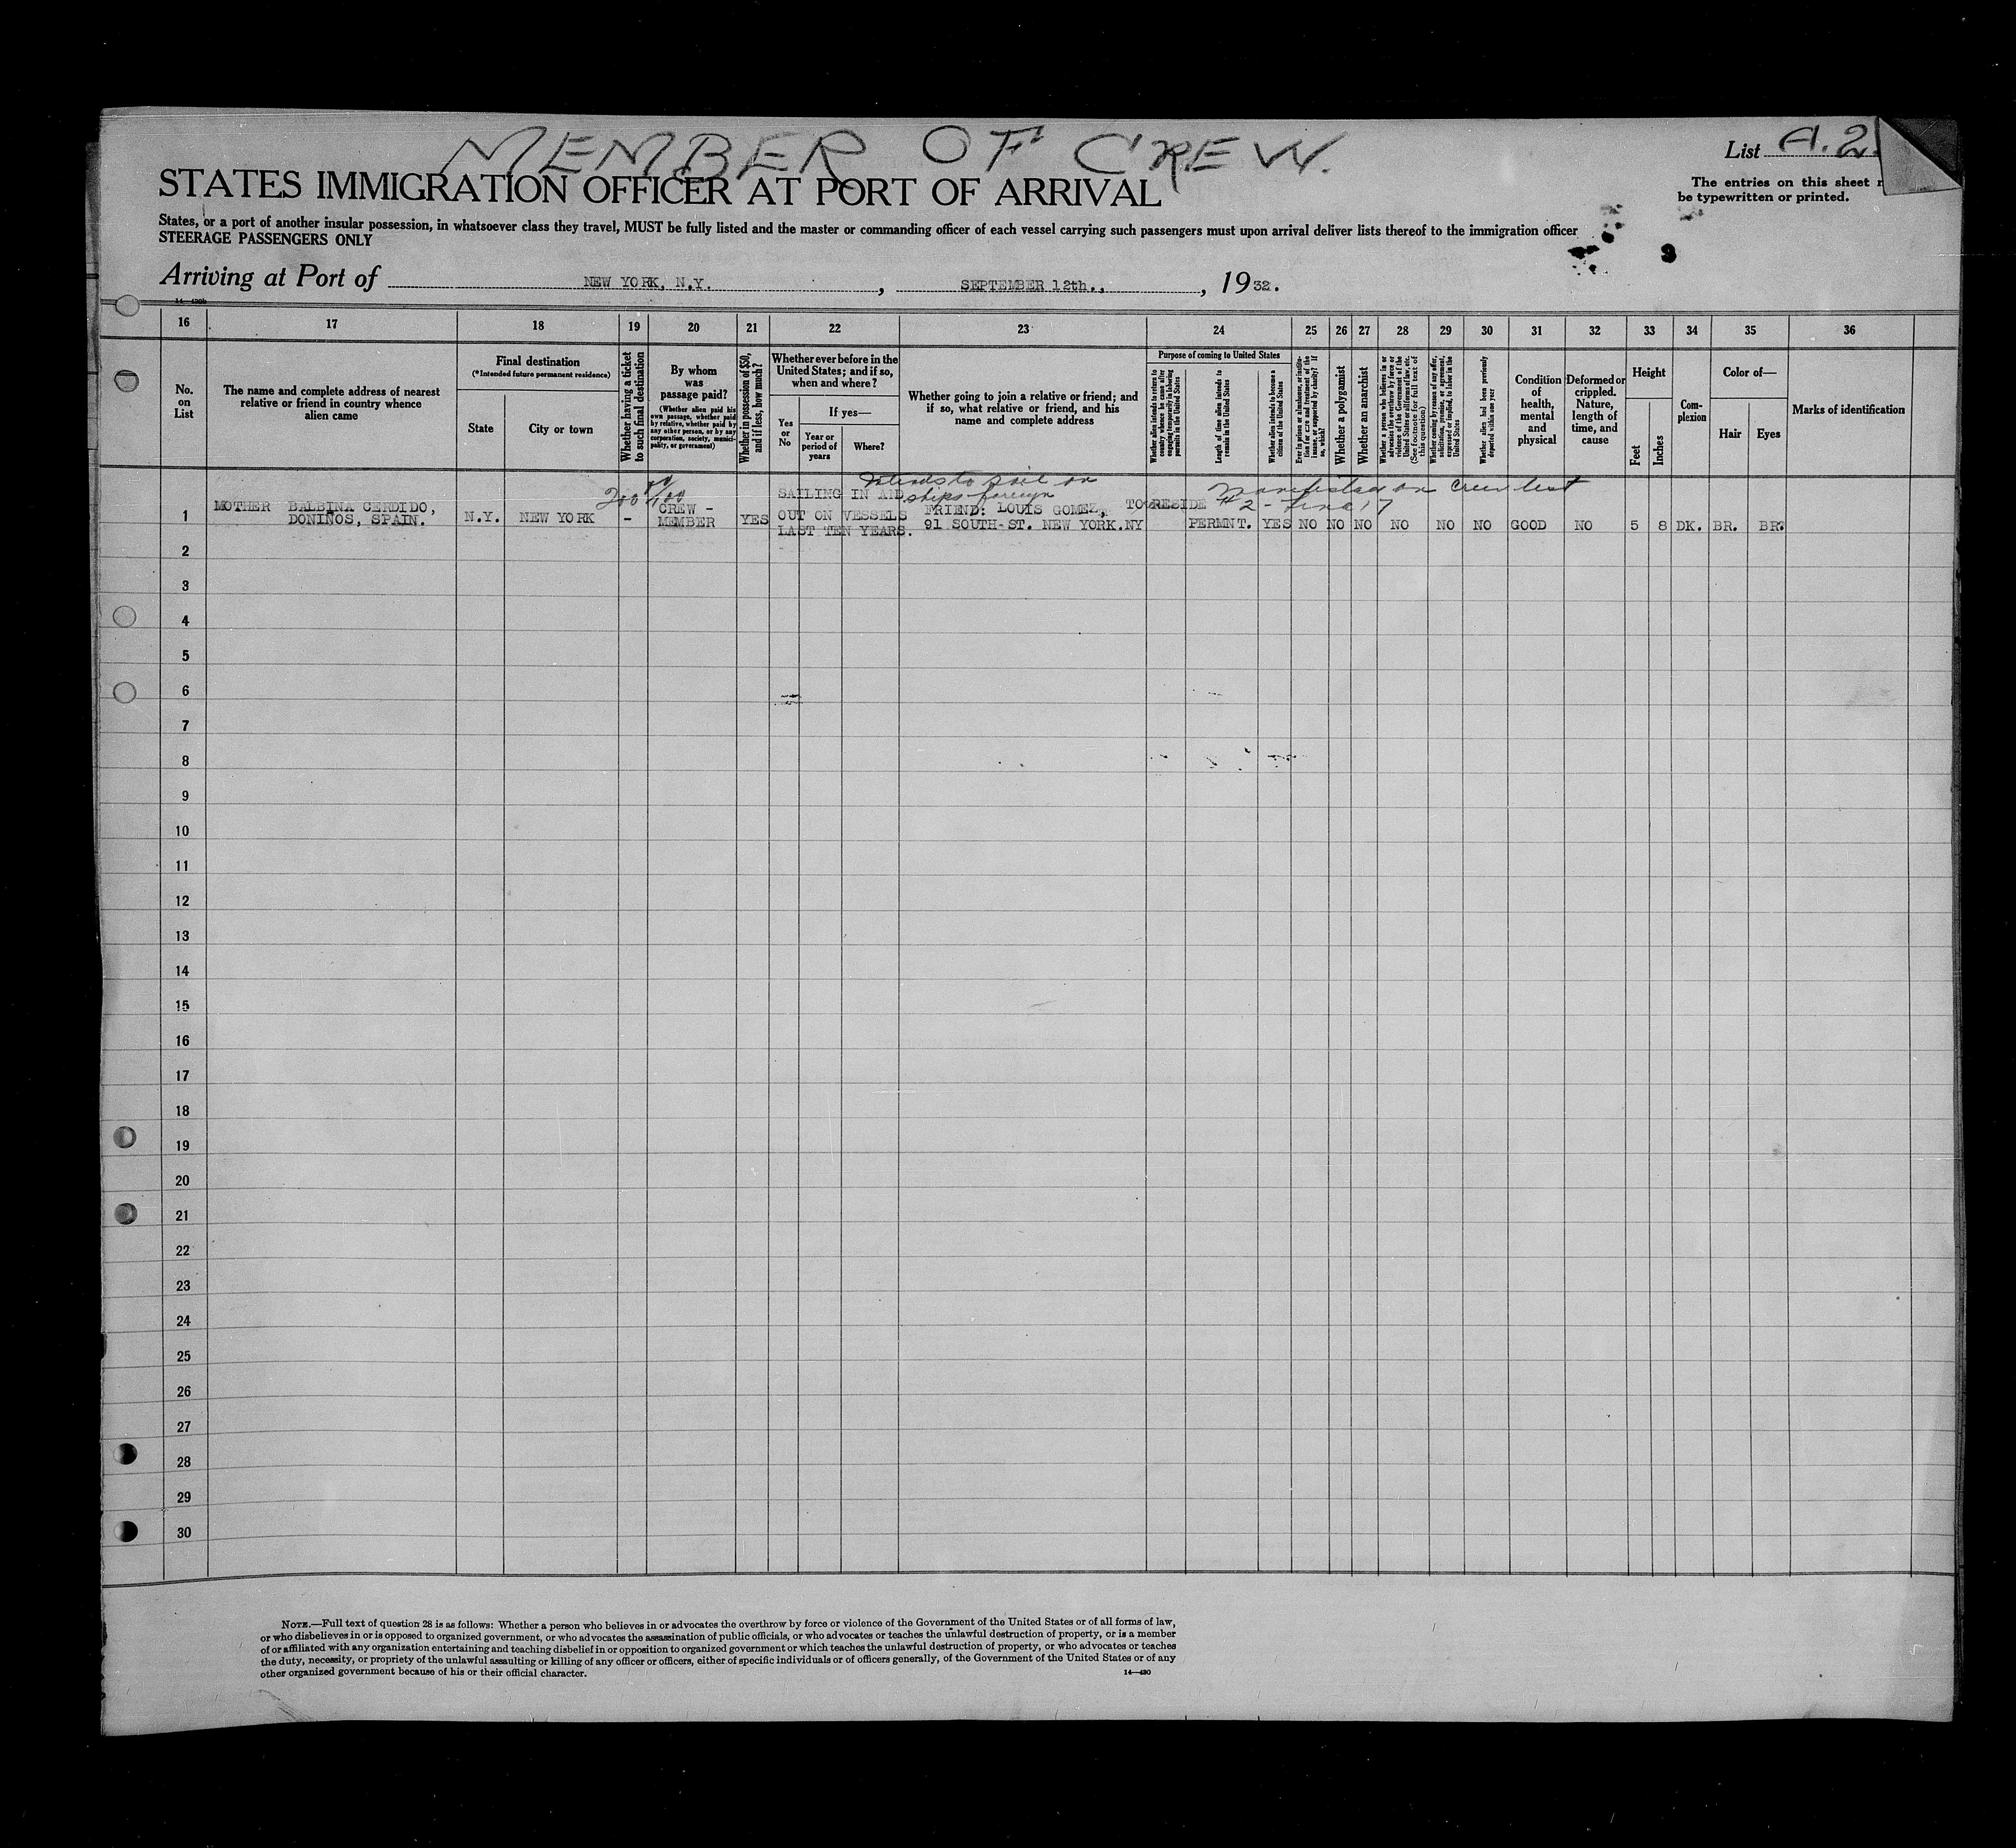 MEMBER OF CREW.
List A.2
STATES IMMIGRATION OFFICER AT PORT OF ARRIVAL
The entries on this sheet
be typewritten or printed.
States, or a port of another insular possession, in whatsoever class they travel, MUST be fully listed and the master or commanding officer of each vessel carrying such passengers must upon arrival deliver lists thereof to the immigration officer
STEERAGE PASSENGERS ONLY
Arriving at Port of NEW YORK, N.Y. , SEPTEMBER 12th., , 1932.
16 17 18 19 20 21 22 23 24 25 26 27 28 29 30 31 32 33 34 35 36
No. on List
The name and complete address of nearest relative or friend in country whence alien came
Final destination
(*Intended future permanent residence)
State
City or town
Whether having a ticket to such final destination
By whom was passage paid?
(Whether alien paid his own passage, whether paid by relative, whether paid by any other person, or by any corporation, society, municipality, or government)
Whether in possession of $50, and if less, how much?
Whether ever before in the United States; and if so, when and where?
Yes or No
If yes—
Year or period of years
Where?
Whether going to join a relative or friend; and if so, what relative or friend, and his name and complete address
Purpose of coming to United States
Whether alien intends to return to country whence he came after engaging temporarily in laboring pursuits in the United States
Length of time alien intends to remain in the United States
Whether alien intends to become a citizen of the United States
Ever in prison or almshouse, or institution for care and treatment of the insane, or supported by charity? If so, which?
Whether a polygamist
Whether an anarchist
Whether a person who believes in or advocates the overthrow by force or violence of the Government of the United States or all forms of law, etc. (See footnote for full text of this question)
Whether coming by reason of any offer, solicitation, promise, or agreement, expressed or implied, to labor in the United States
Whether alien had been previously deported within one year
Condition of health, mental and physical
Deformed or crippled. Nature, length of time, and cause
Height
Feet
Inches
Complexion
Color of—
Hair
Eyes
Marks of identification
Intends to sail on
ships foreign
Manifested on Crew list
#2 - Line 17
1 MOTHER BALBINA CERDIDO, DONIÑOS, SPAIN. N.Y. NEW YORK - CREW - MEMBER YES SAILING IN AND OUT ON VESSELS LAST TEN YEARS. FRIEND: LOUIS GOMEZ, 91 SOUTH-ST. NEW YORK.NY TO RESIDE PERMNT. YES NO NO NO NO NO NO GOOD NO 5 8 DK. BR. BR.
2
3
4
5
6
7
8
9
10
11
12
13
14
15
16
17
18
19
20
21
22
23
24
25
26
27
28
29
30
NOTE.—Full text of question 28 is as follows: Whether a person who believes in or advocates the overthrow by force or violence of the Government of the United States or of all forms of law,
or who disbelieves in or is opposed to organized government, or who advocates the assassination of public officials, or who advocates or teaches the unlawful destruction of property, or is a member
of or affiliated with any organization entertaining and teaching disbelief in or opposition to organized government or which teaches the unlawful destruction of property, or who advocates or teaches
the duty, necessity, or propriety of the unlawful assaulting or killing of any officer or officers, either of specific individuals or of officers generally, of the Government of the United States or of any
other organized government because of his or their official character.
14—430